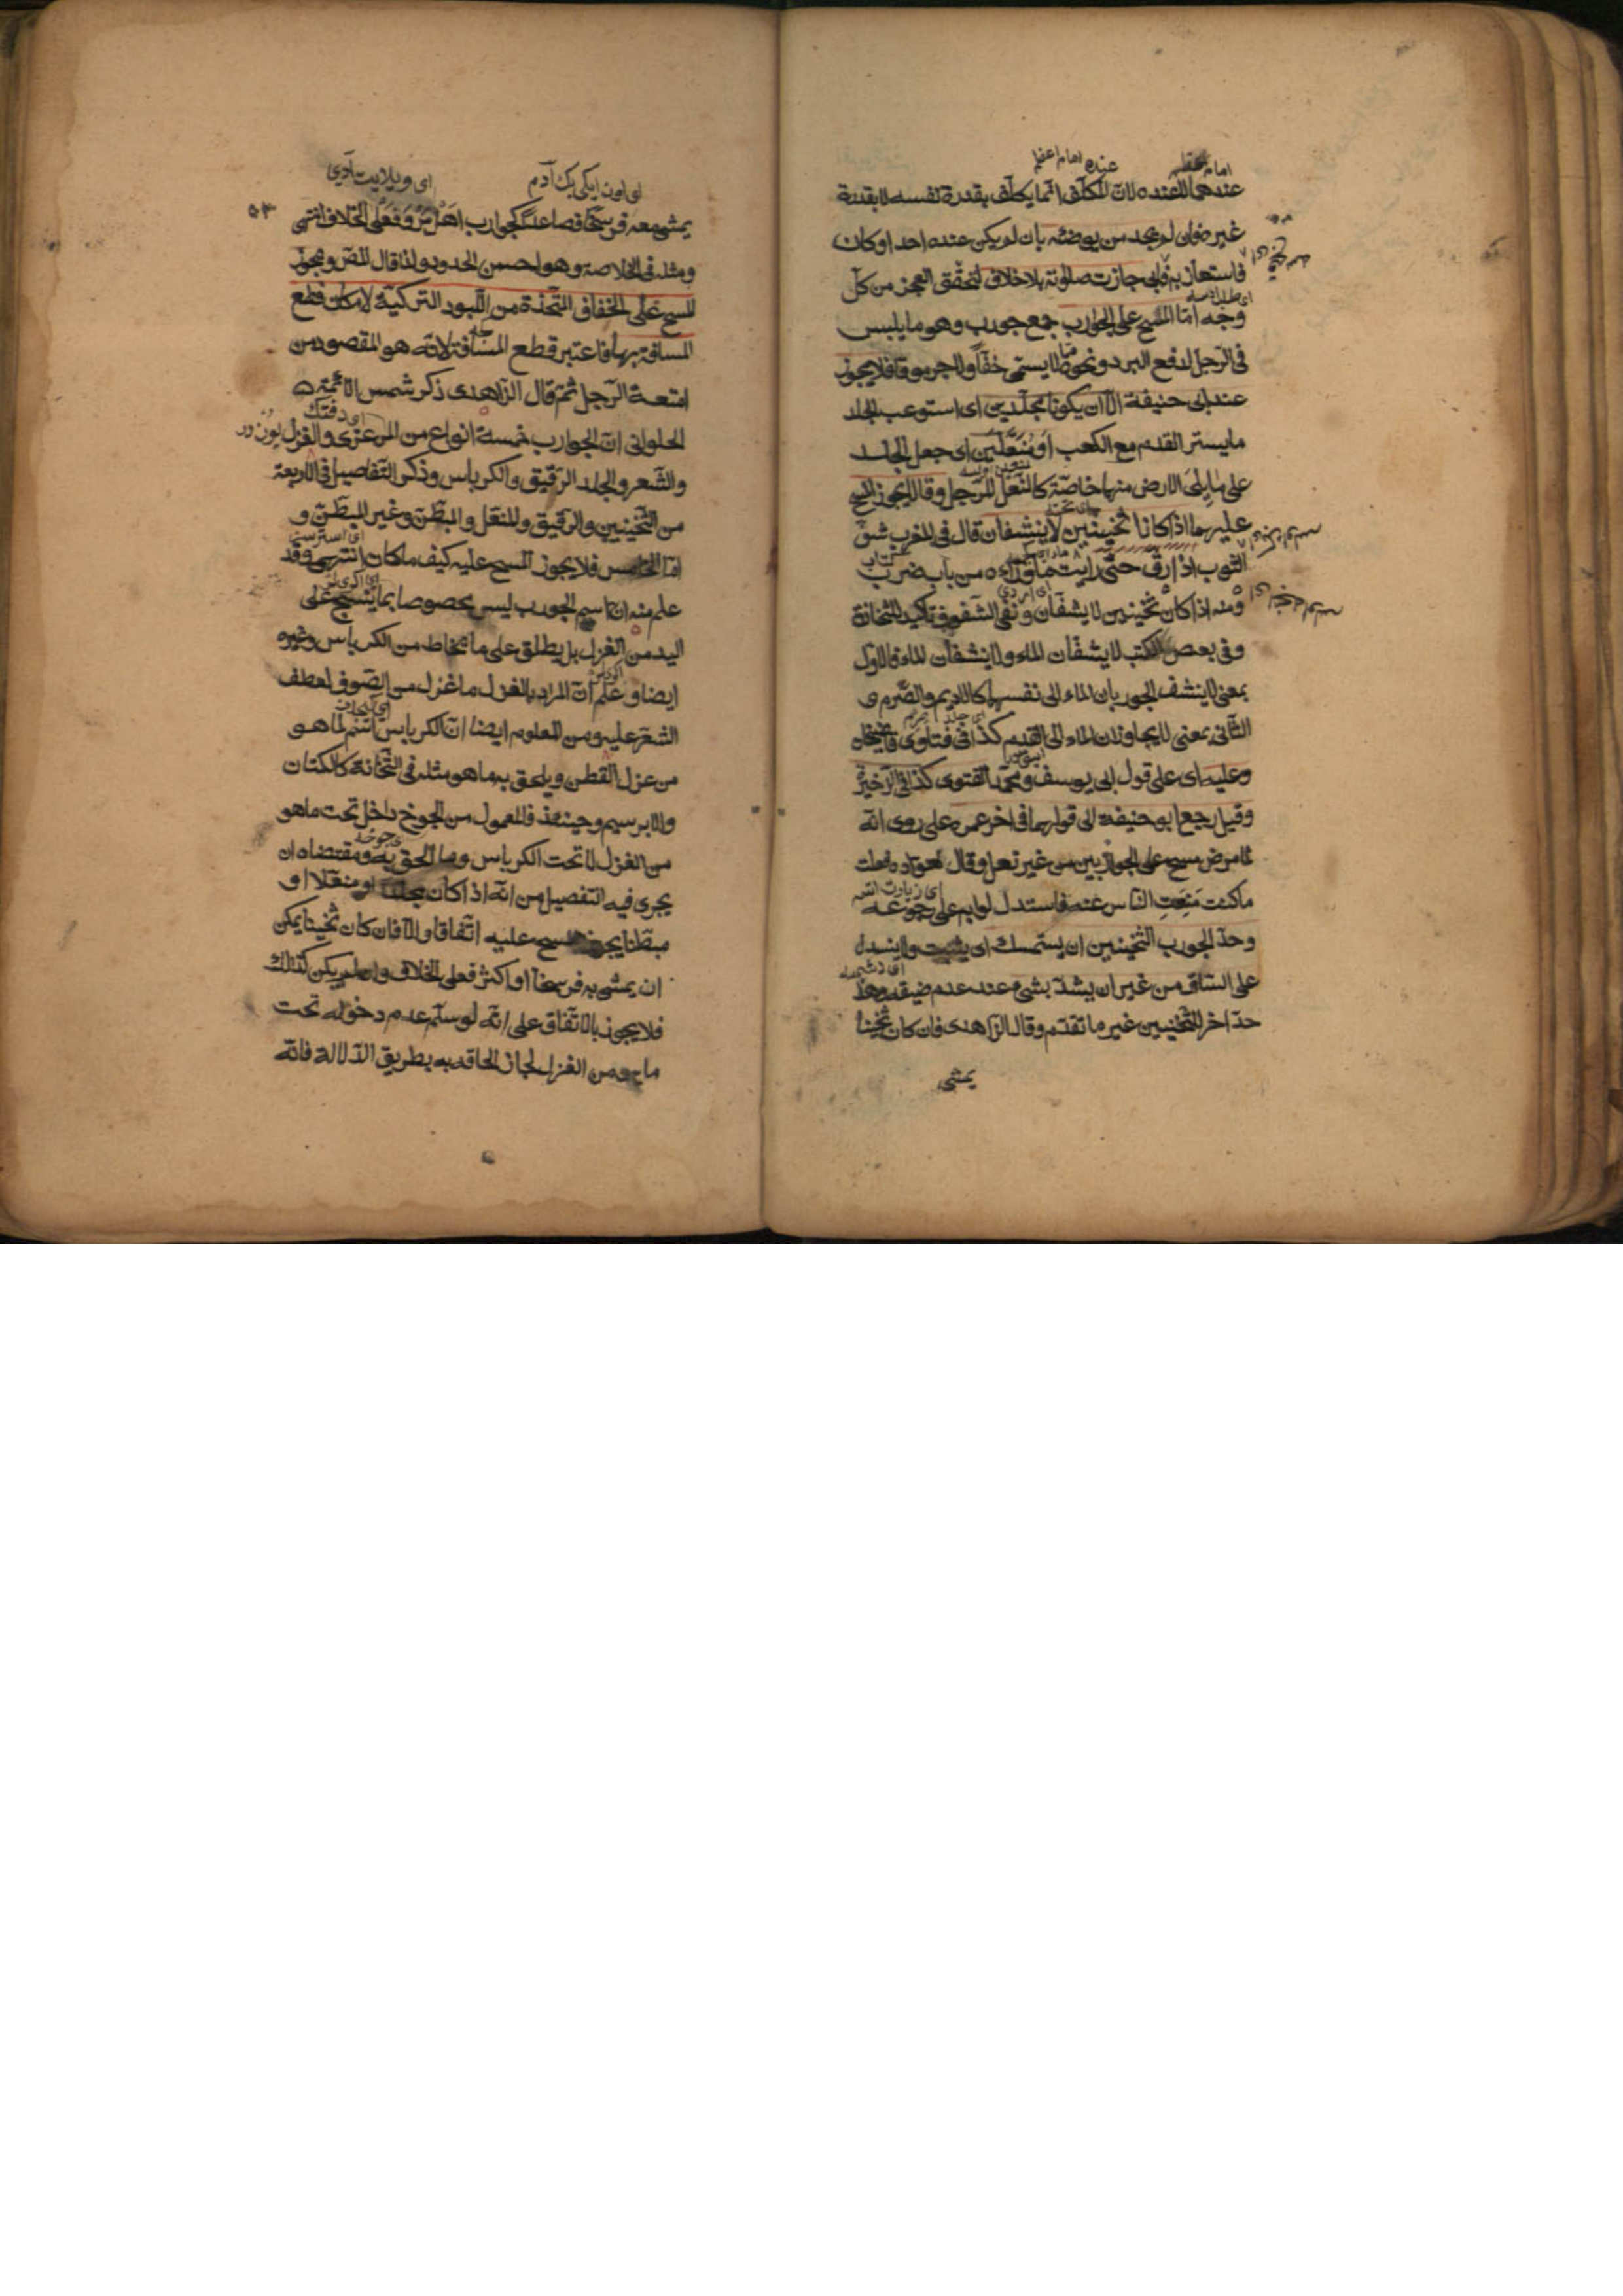 امام اعظم
عنده امام اعظم
عندهما لا عنده لان المكلف انما يكلف بقدرة نفسه لا بقدرة
غيره فان لم يجد من يوضئه بان لم يكن عنده احد او كان
فاستعان به فابى جازت صلوته بلا خلاف لتحقق العجز من كل
وجه اما المسح على الجوارب جمع جورب وهو ما يلبس
فى الرجل لدفع البرد ونحوه مما لا يسمى خفا ولا جرموقا فلا يجوز
عند ابى حنيفة الا ان يكونا مجلدين اى استوعب الجلد
ما يستر القدم مع الكعب او منعلين اى جعل الجلد
على ما يلى الارض منها خاصة كالنعل للرجل وقالا يجوز المسح
عليهما اذا كانا ثخينين لا يشفان قال فى المغرب شف
الثوب اذا رق حتى رايت ما وراءه من باب ضرب
ومنه اذا كانا ثخينين لا يشفان ونفى الشفوف تاكيد للثخانة
وفى بعض الكتب لا يشفان الماء ولا ينشفان الماء فالاول
بمعنى لا ينشف الجوربان الماء الى نفسهما كالاديم والصرم و
الثانى بمعنى لا يجاوزان الماء الى القدم كذا فى فتاوى قاضيخان
وعليه اى على قول ابى يوسف ومحمد الفتوى كذا فى الذخيرة
وقيل رجع ابو حنيفة الى قولهما فى اخر عمره على روى انه
فى مرضه مسح على الجوربين من غير نعل وقال لعواده فعلت
ما كنت منعت الناس عنه فاستدل لوا به على رجوعه
وحد الجورب الثخينين ان يستمسك اى يثبت ولا ينسدل
على الساق من غير ان يشد بشئ عند عدم ضيقه وهذا
حد اخر للثخينين غير ما تقدم وقال الزاهدى فان كان ثخينا
يمشى
اى اون ايكى بيك آدم
اى ويلايت آدى
٥٣
يمشى معه فرسخا فصاعدا كجوارب اهل مرو فعلى الخلاف انتهى
ومثله فى الخلاصة وهو احسن الحدود ولذا قال المص ويجوز
المسح على الخفاف المتخذة من اللبود التركية لامكان قطع
المسافة بها فاعتبر قطع المسافة لانه هو المقصود من
امتعة الرجل ثم قال الزاهدى ذكر شمس الائمة
الحلوانى ان الجوارب خمسة انواع من المرعزى والغزل
والشعر والجلد الرقيق والكرباس وذكر التفاصيل فى الاربعة
من الثخينين والرقيق والمنعل والمبطن وغير المبطن و
اما الخامس فلا يجوز المسح عليه كيف ما كان انتهى وقد
علم منه ان اسم الجورب ليس مخصوصا بما ينسج على
اليد من الغزل بل يطلق على ما يخاط من الكرباس وغيره
ايضا وعلم ان المراد بالغزل ما غزل من الصوف لعطف
الشعر عليه ومن المعلوم ايضا ان الكرباس اسم لما هو
من غزل القطن ويلحق به ما هو مثله فى الثخانة كالكتان
والابرسيم وحينئذ فالمعمول من الجوخ داخل تحت ما هو
من الغزل لا تحت الكرباس وما الحق به ومقتضاه ان
يجرى فيه التفصيل من انه اذا كان مجلدا او منعلا او
مبطنا يجوز المسح عليه اتفاقا والا فان كان ثخينا يمكن
ان يمشى به فرسخا او اكثر فعلى الخلاف وان لم يكن كذلك
فلا يجوز بالاتفاق على انه لو سلم عدم دخوله تحت
ما هو من الغزل لجاز الحاقه به بطريق الدلالة فانه